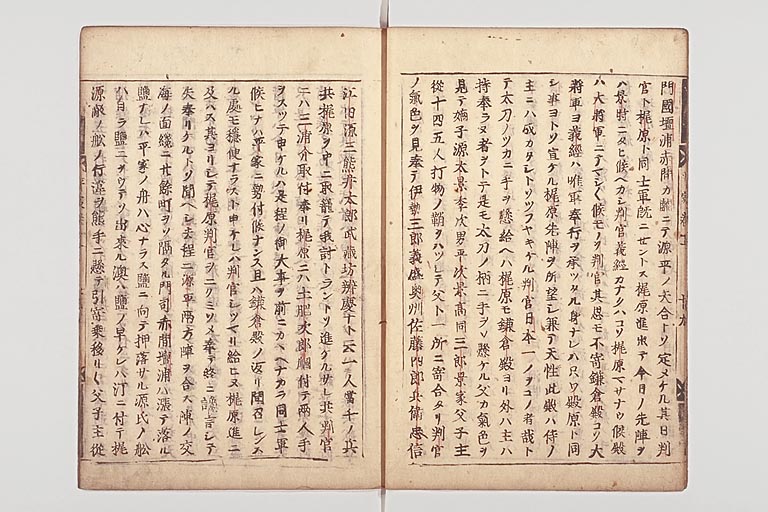 門國壇浦赤間カ關ニテ源平ノ矢合トソ定メケル其日判
官ト梶原ト同士軍既ニセントス梶原進出テ今日ノ先陣ヲ
ハ景時ニタヒ候ヘカシ判官義經カナクハコソ梶原マサナウ候殿
ハ大將軍ニテマシ〱候モノヲ判官其思モ不寄鎌倉殿コソ大
將軍ヨ義經ハ唯軍奉行ヲ承ツタル身ナレハ只ワ殿原ト同
シ事ヨトソ宣ケル梶原先陣ヲ所望シ兼テ天性此殿ハ侍ノ
主ニハ成カタシトソツフヤキケル判官日本一ノヲコノ者哉ト
テ太刀ノツカニ手ヲ懸給ヘハ梶原モ鎌倉殿ヨリ外ハ主ハ
持奉ラヌ者ヲトテ是モ太刀ノ柄ニ手ヲソ懸ケル父カ氣色ヲ
見テ嫡子源太景季次男平次景高同三郎景家父子主
從十四五人打物ノ鞘ヲハツシテ父ト一所ニ寄合タリ判官
ノ氣色ヲ見奉テ伊勢三郎義盛奥州佐藤四郎兵衛忠信
江田源三熊井太郎武藏坊辨慶ナト云一人當千ノ兵
共梶原ヲ中ニ取籠テ我討トラントソ進ケルサレ共判官
ニハ三浦介取付奉リ梶原ニハ土肥次郎𫉬付テ兩人手
ヲスツテ申ケルハ是程ノ御大事ヲ前ニカヽヘナカラ同士軍
候ヒナハ平家ニ勢付候ナンス且ハ鎌倉殿ノ返リ聞召レンス
ル處モ穩便ナラスト申ケレハ判官シツマリ給ヒヌ梶原進ニ
及ハス其ヨリシテ梶原判官ヲニクミソメ奉テ終ニ讒言シテ
失奉リケルトソ聞ヘシ去程ニ源平兩方陣ヲ合ス陣ノ交
海ノ面纔ニ廿餘町ヲソ隔タル門司赤間壇浦ハ漲テ落ル
鹽ナレハ平家ノ舟ハ心ナラス鹽ニ向テ押落サル源氏ノ舩
ハ自ラ鹽ニヲウテソ出來ル澳ハ鹽ノ早ケレハ汀ニ付テ梶
源敵ノ舩ノ行違ヲ熊手ニ懸テ引寄乘移リ〱父子主從